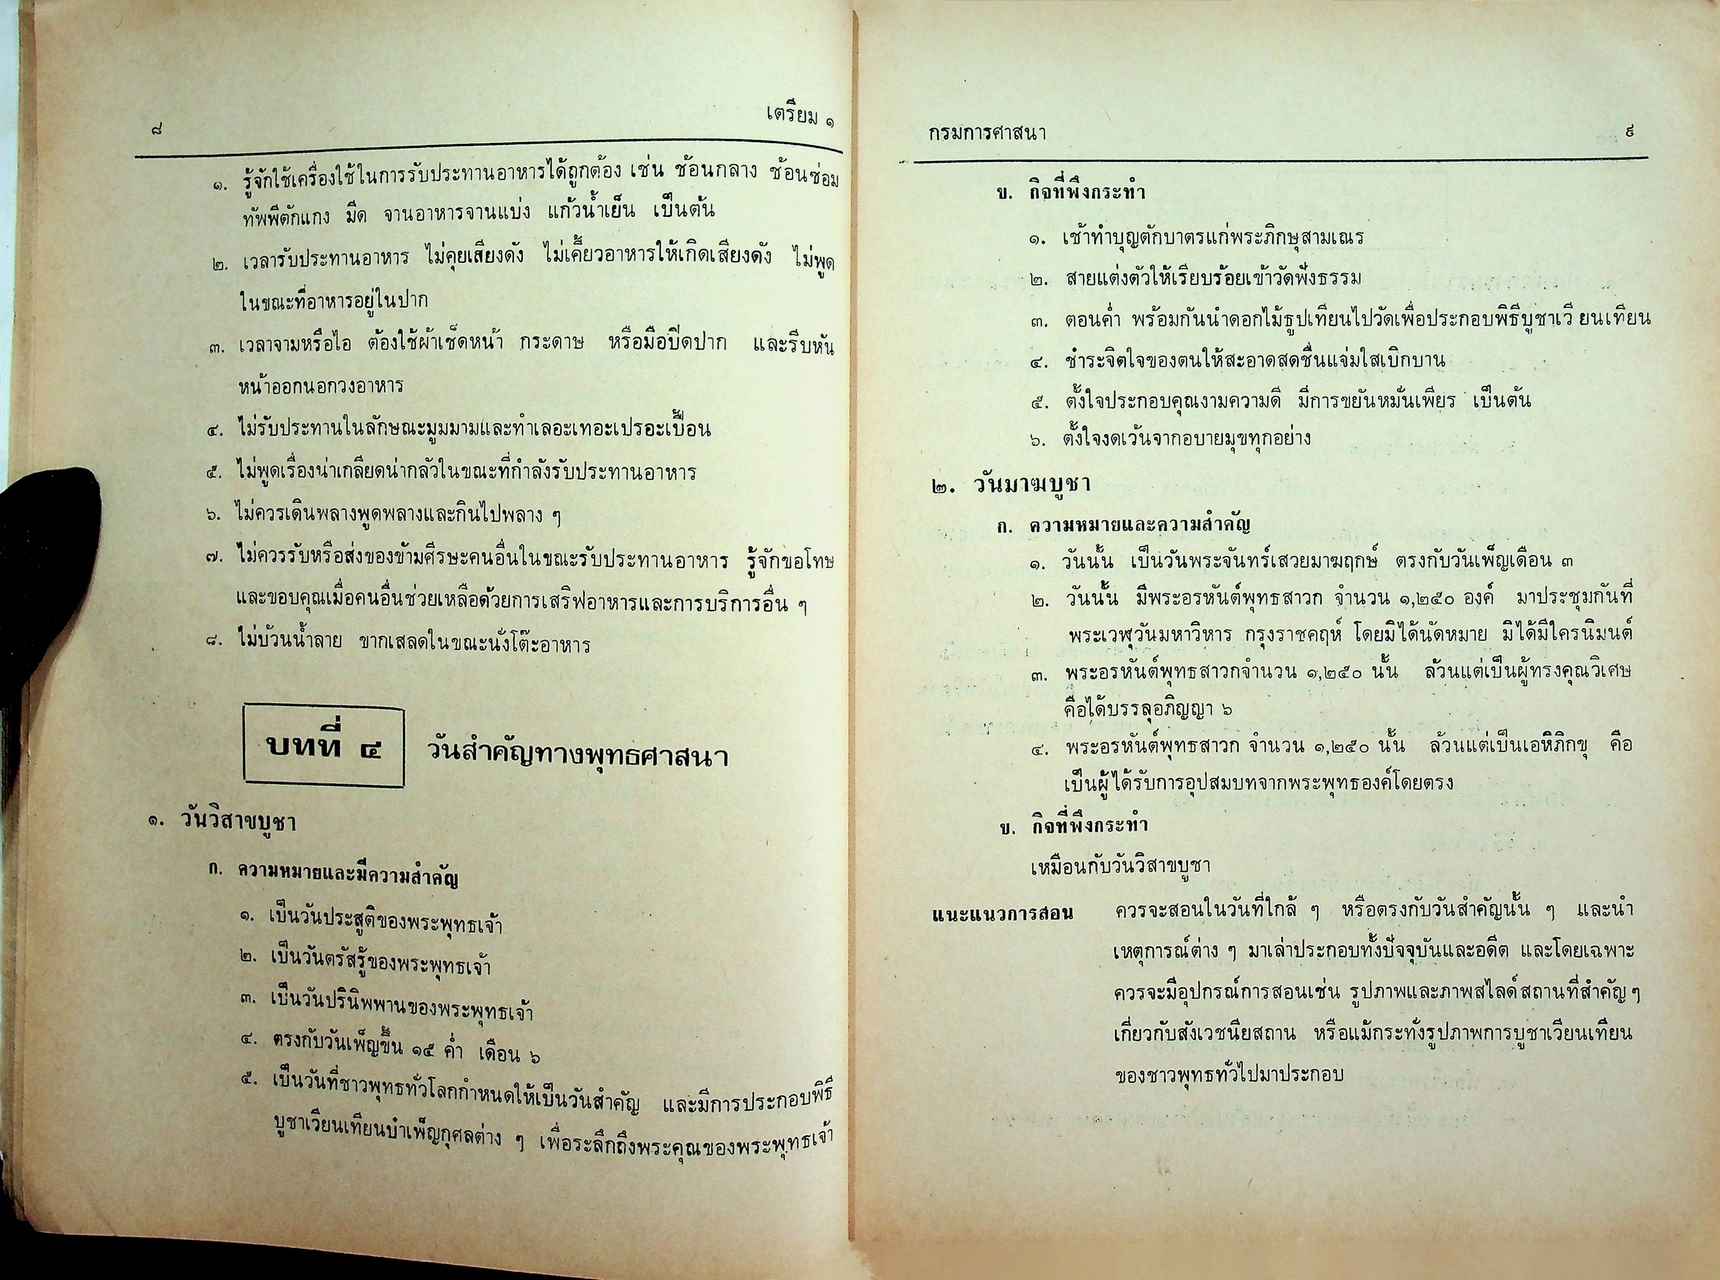 ๘
เตรียม ๑
๑. รู้จักใช้เครื่องใช้ในการรับประทานอาหารได้ถูกต้อง เช่น ช้อนกลาง ช้อนซ่อม
ทัพพีตักแกง มีด จานอาหารจานแบ่ง แก้วน้ำเย็น เป็นต้น
๒. เวลารับประทานอาหาร ไม่คุยเสียงดัง ไม่เคี้ยวอาหารให้เกิดเสียงดัง ไม่พูด
ในขณะที่อาหารอยู่ในปาก
๓. เวลาจามหรือไอ ต้องใช้ผ้าเช็ดหน้า กระดาษ หรือมือปิดปาก และรีบหัน
หน้าออกนอกวงอาหาร
๔. ไม่รับประทานในลักษณะมูมมามและทำเลอะเทอะเปรอะเปื้อน
๕. ไม่พูดเรื่องน่าเกลียดน่ากลัวในขณะที่กำลังรับประทานอาหาร
๖. ไม่ควรเดินพลางพูดพลางและกินไปพลาง ๆ
๗. ไม่ควรรับหรือส่งของข้ามศีรษะคนอื่นในขณะรับประทานอาหาร รู้จักขอโทษ
และขอบคุณเมื่อคนอื่นช่วยเหลือด้วยการเสริฟอาหารและการบริการอื่น ๆ
๘. ไม่บ้วนน้ำลาย ขากเสลดในขณะนั่งโต๊ะอาหาร
บทที่ ๔ วันสำคัญทางพุทธศาสนา
๑. วันวิสาขบูชา
ก. ความหมายและมีความสำคัญ
๑. เป็นวันประสูติของพระพุทธเจ้า
๒. เป็นวันตรัสรู้ของพระพุทธเจ้า
๓. เป็นวันปรินิพพานของพระพุทธเจ้า
๔. ตรงกับวันเพ็ญขึ้น ๑๕ ค่ำ เดือน ๖
๕. เป็นวันที่ชาวพุทธทั่วโลกกำหนดให้เป็นวันสำคัญ และมีการประกอบพิธี
บูชาเวียนเทียนบำเพ็ญกุศลต่าง ๆ เพื่อระลึกถึงพระคุณของพระพุทธเจ้า
กรมการศาสนา
๙
ข. กิจที่พึงกระทำ
๑. เช้าทำบุญตักบาตรแก่พระภิกษุสามเณร
๒. สายแต่งตัวให้เรียบร้อยเข้าวัดฟังธรรม
๓. ตอนค่ำ พร้อมกันนำดอกไม้ธูปเทียนไปวัดเพื่อประกอบพิธีบูชาเวี ยนเทียน
๔. ชำระจิตใจของตนให้สะอาดสดชื่นแจ่มใสเบิกบาน
๕. ตั้งใจประกอบคุณงามความดี มีการขยันหมั่นเพียร เป็นต้น
๖. ตั้งใจงดเว้นจากอบายมุขทุกอย่าง
๒. วันมาฆบูชา
ก. ความหมายและความสำคัญ
๑. วันนั้น เป็นวันพระจันทร์เสวยมาฆฤกษ์ ตรงกับวันเพ็ญเดือน ๓
๒. วันนั้น มีพระอรหันต์พุทธสาวก จำนวน ๑,๒๕๐ องค์ มาประชุมกันที่
พระเวฬุวันมหาวิหาร กรุงราชคฤห์ โดยมิได้นัดหมาย มิได้มีใครนิมนต์
๓. พระอรหันต์พุทธสาวกจำนวน ๑,๒๕๐ นั้น ล้วนแต่เป็นผู้ทรงคุณวิเศษ
คือได้บรรลุอภิญญา ๖
๔. พระอรหันต์พุทธสาวก จำนวน ๑,๒๕๐ นั้น ล้วนแต่เป็นเอหิภิกขุ คือ
เป็นผู้ได้รับการอุปสมบทจากพระพุทธองค์โดยตรง
ข. กิจที่พึงกระทำ
เหมือนกับวันวิสาขบูชา
แนะแนวการสอน ควรจะสอนในวันที่ใกล้ ๆ หรือตรงกับวันสำคัญนั้น ๆ และนำ
เหตุการณ์ต่าง ๆ มาเล่าประกอบทั้งปัจจุบันและอดีต และโดยเฉพาะ
ควรจะมีอุปกรณ์การสอนเช่น รูปภาพและภาพสไลด์สถานที่สำคัญ ๆ
เกี่ยวกับสังเวชนียสถาน หรือแม้กระทั่งรูปภาพการบูชาเวียนเทียน
ของชาวพุทธทั่วไปมาประกอบ